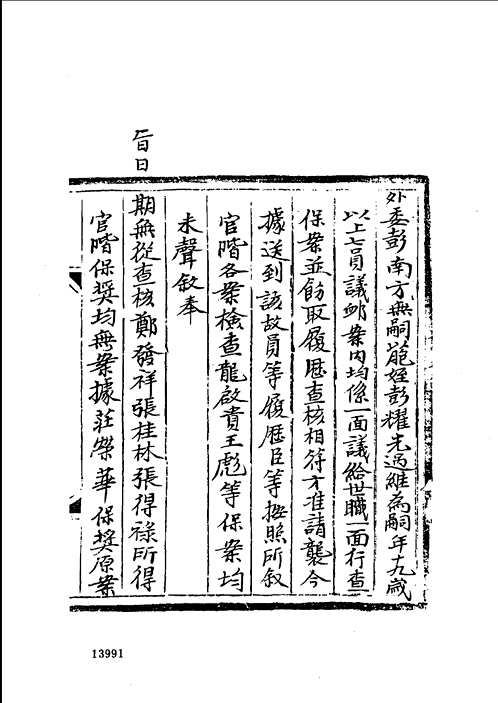 外委彭南方無嗣胞姪彭耀先過繼為嗣年十九歲
以上七員議卹案內均係一面議給世職一面行查
保案並飭取履歷查核相符方准請襲今
據送到該故員等履歷臣等按照所敘
官階各案檢查龍啟貴王彪等保案均
未聲敘奉
旨日
期無從查核鄭發祥張桂林張得祿所得
官階保獎均無案據莊榮華保獎原案
13991